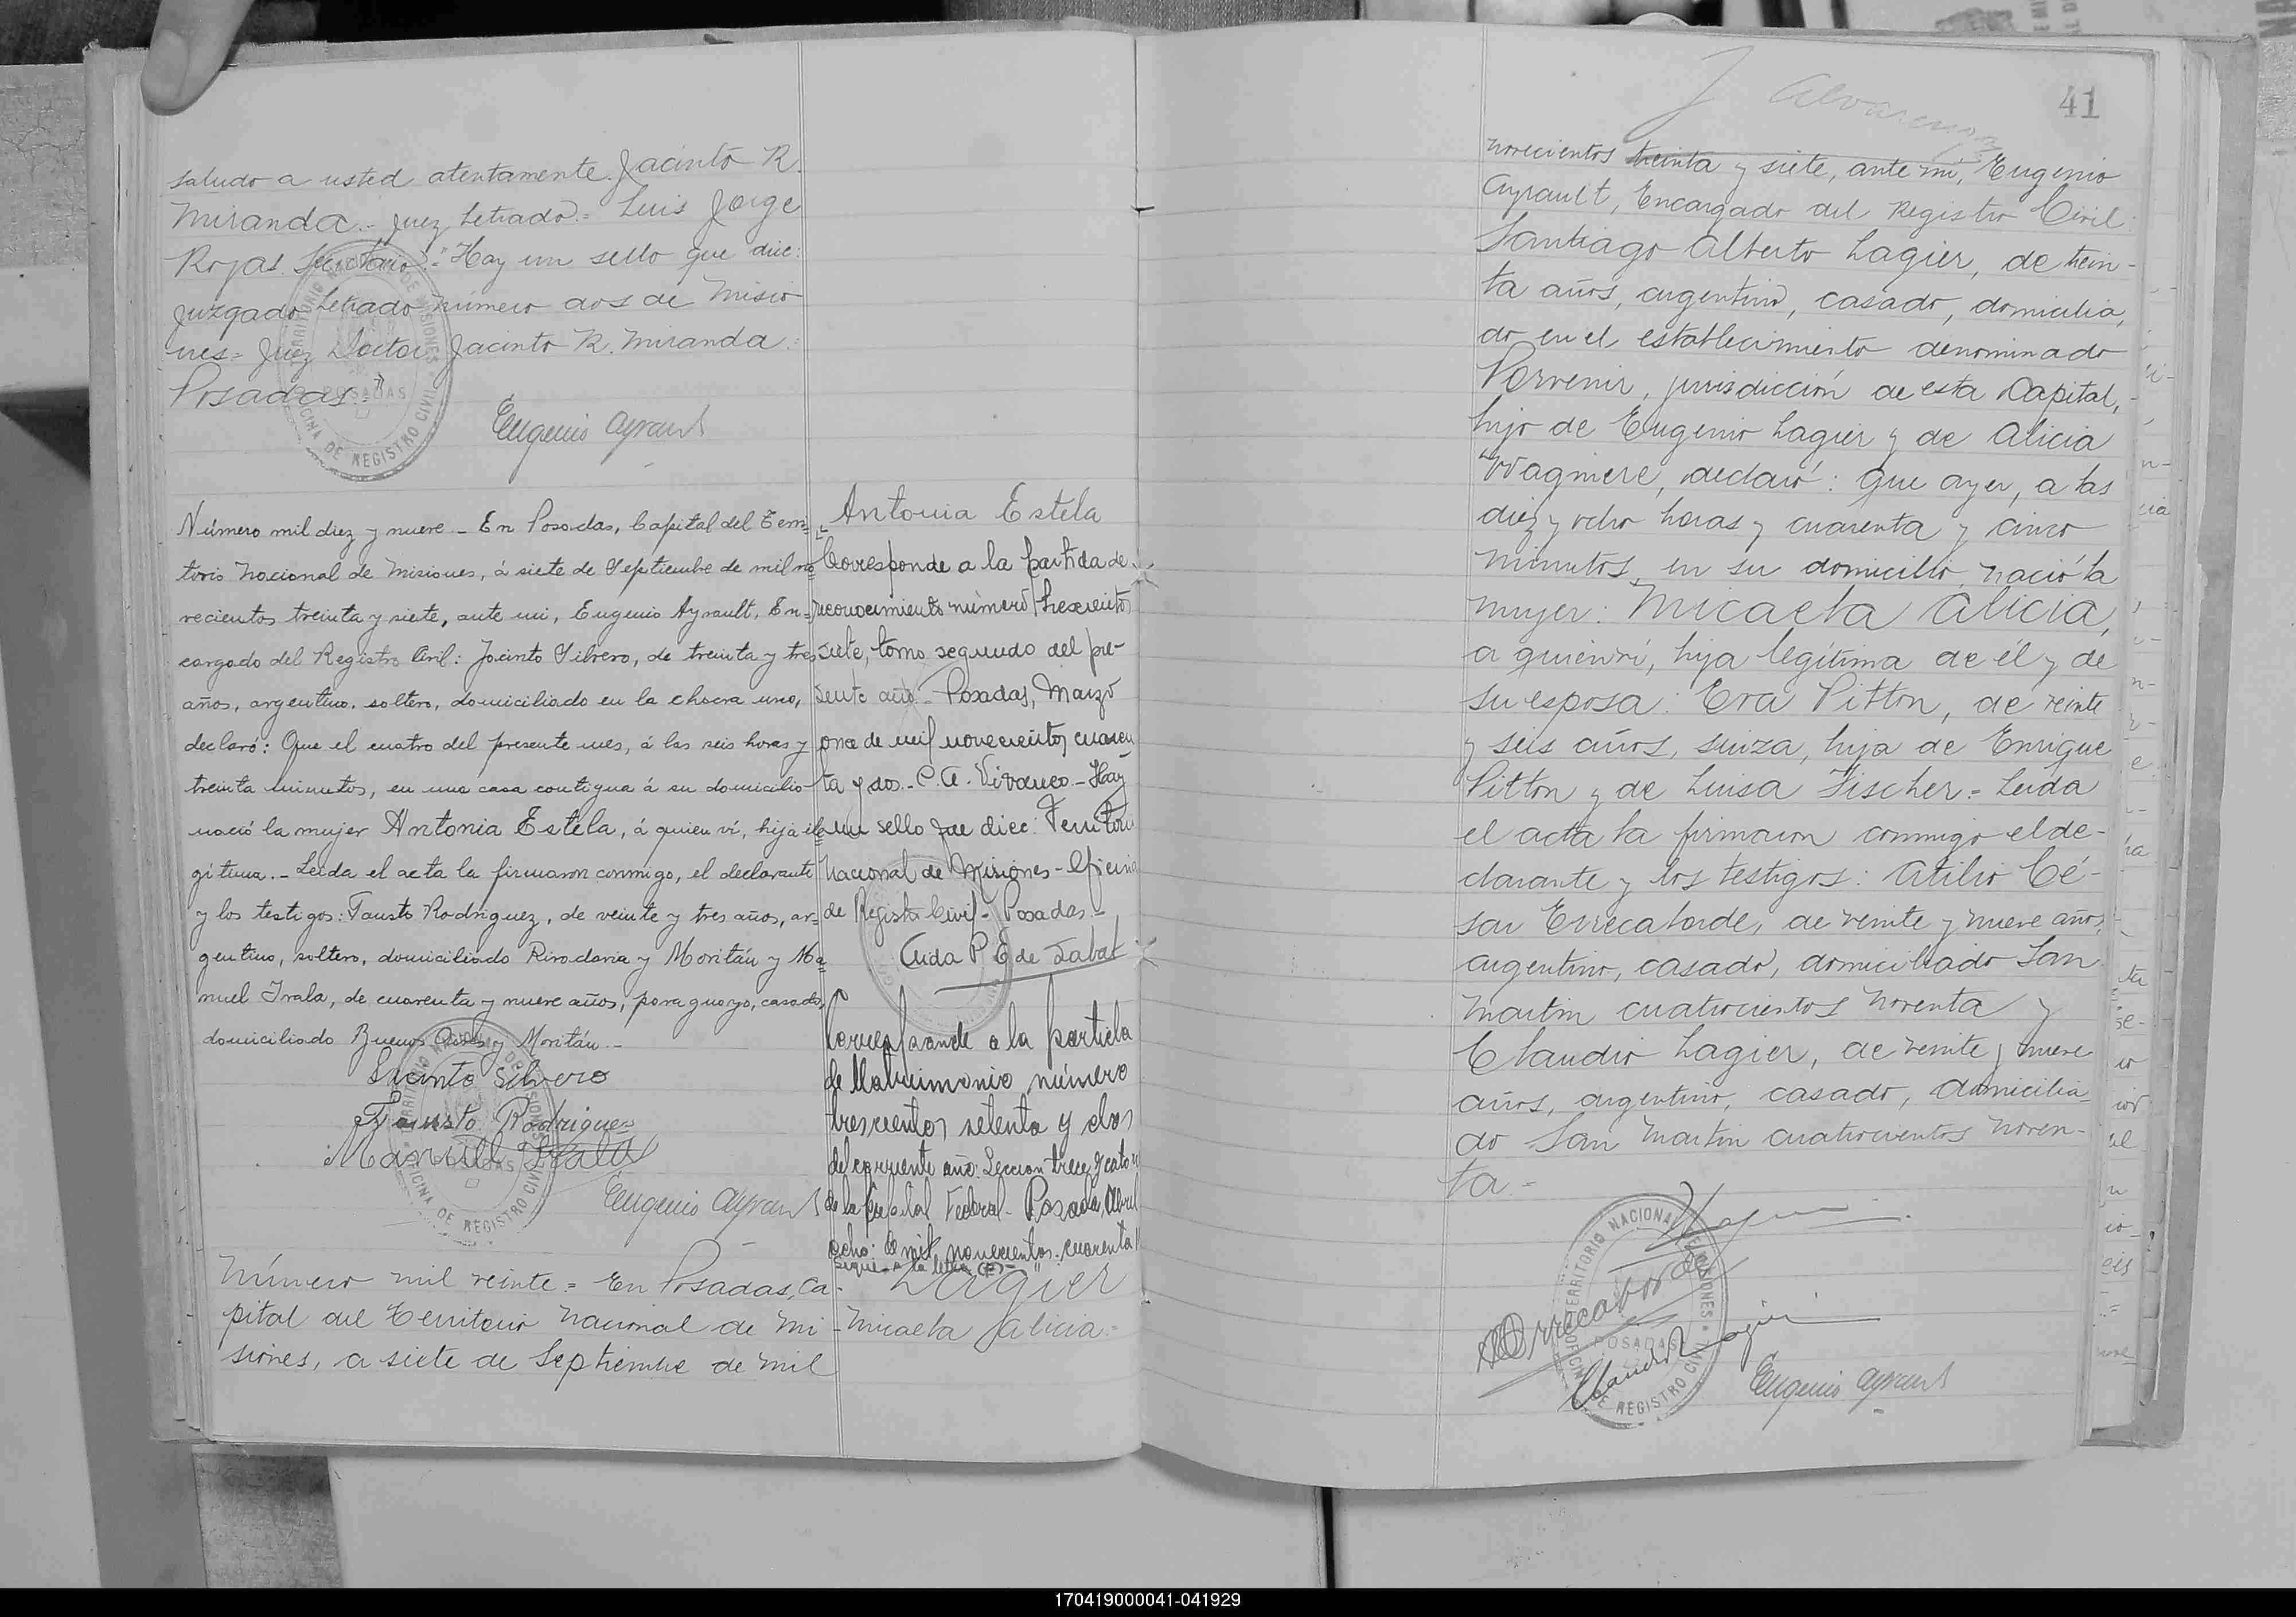 saludo a usted atentamente. Jacinto R.
Miranda.- Juez Letrado.= Luis Jorge
Rojas Secretario.=" Hay un sello que dice:
Juzgado Letrado número dos de Misio
nes= Juez Doctor Jacinto R. Miranda.
Posadas.="
Eugenio Ayrault
Número mil diez y nueve.- En Posadas, Capital del Terri=
torio Nacional de Misiones, á siete de Septiembre de mil no=
vecientos treinta y siete, ante mi, Eugenio Ayrault, En=
cargado del Registro Civil: Jacinto Silvero, de treinta y tres
años, argentino, soltero, domiciliado en la chacra uno,
declaró: Que el cuatro del presente mes, á las seis horas y
treinta minutos, en una casa contigua á su domicilio
nació la mujer Antonia Estela, á quien ví, hija ile=
gitima.- Leida el acta la firmaron conmigo, el declarante
y los testigos: Fausto Rodriguez, de veinte y tres años, ar=
gentino, soltero, domiciliado Rivadavia y Moritán y Ma=
nuel Irala, de cuarenta y nueve años, paraguayo, casado,
domiciliado Buenos Aires y Moritán.-
Jacinto Silvero
Fausto Rodriguez
Manuel Irala
Eugenio Ayrault
Número mil veinte = En Posadas, Ca-
pital del Territorio Nacional de Mi-
siones, a siete de Septiembre de mil
Antonia Estela
Corresponde a la partida de
reconocimiento número trescientos
siete, tomo segundo del pre-
sente año.- Posadas, Marzo
once de mil novecientos cuaren
ta y dos.- C. A. Vivanco.- Hay
un sello que dice: Territorio
Nacional de Misiones - Oficina
de Registro Civil - Posadas.-
Aida P E de Sabat
Corresponde a la partida
de Matrimonio número
trescientos setenta y dos
del corriente año: Seccion trece y catorce
de la Capital Federal - Posadas, Abril
ocho: de mil novecientos cuarenta
Sigue a la letra (F)-
Lagier
Micaela Alicia.=
J Alvarenga
41
novecientos treinta y siete, ante mí, Eugenio
Ayrault, Encargado del Registro Civil:
Santiago Alberto Lagier, de trein-
ta años, argentino, casado, domicilia,
do en el establecimiento denominado
Porvenir, jurisdicción de esta Capital,
hijo de Eugenio Lagier y de Alicia
Wagniere, declaró: Que ayer, a las
diez y ocho horas y cuarenta y cinco
minutos, en su domicilio, nació la
mujer: Micaela Alicia,
a quien ví, hija legítima de él y de
su esposa: Eva Pitton, de veinte
y seis años, suiza, hija de Enrique
Pitton y de Luisa Fischer.= Leida
el acta la firmaron conmigo el de-
clarante y los testigos: Atilio Cé-
sar Errecaborde, de veinte y nueve años,
argentino, casado, domiciliado San
Martin cuatrocientos noventa y
Claudio Lagier, de veinte y nueve
años, argentino, casado, domicilia=
do San Martin cuatrocientos noven-
ta =
Lagier
AErrecaborde
Claudio Lagier
Eugenio Ayrault
TERRITORIO NACIONAL DE MISIONES
POSADAS
OFICINA DE REGISTRO CIVIL
170419000041-041929